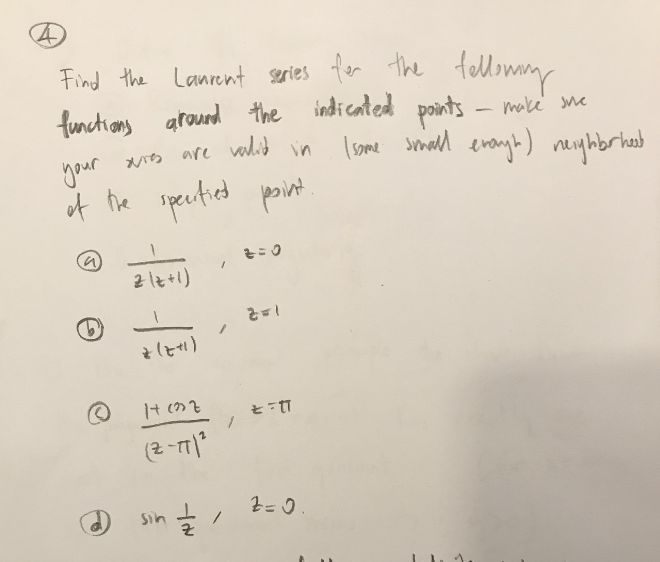 4
Find the Laurent series for the following
functions around the indicated points – make sure
your series are valid in (some small enough) neighborhood
of the specified point.
(a) 1/(z(z+1)) , z=0
(b) 1/(z(z+1)) , z=1
(c) (1+cos z)/(z-π)² , z=π
(d) sin 1/z , z=0.